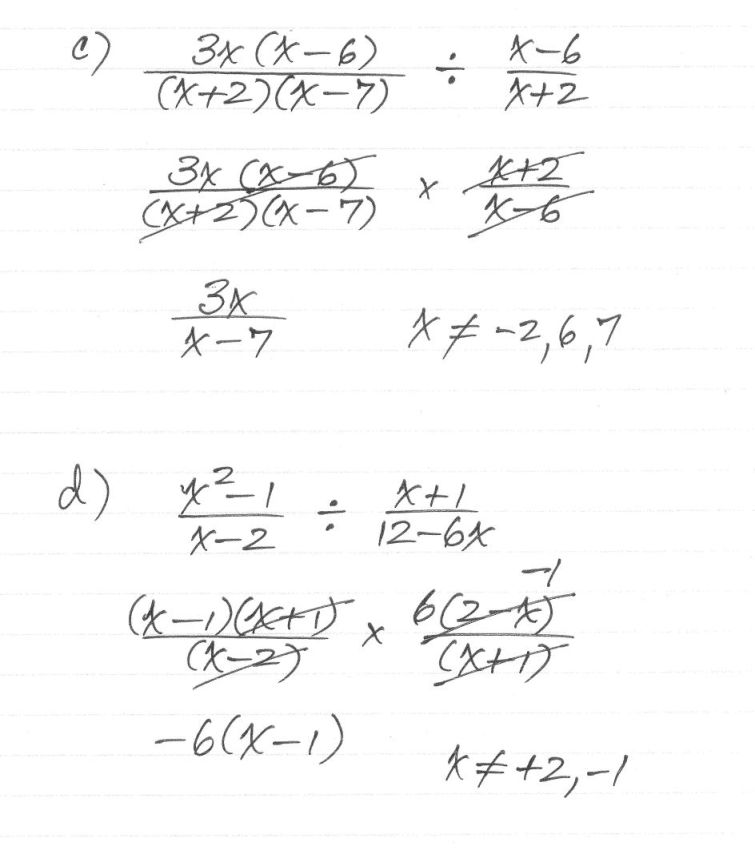 c) 3x(x-6)/(x+2)(x-7) ÷ x-6/x+2
3x(x-6)/(x+2)(x-7) x x+2/x-6
3x/x-7 x ≠ -2,6,7
d) x²-1/x-2 ÷ x+1/12-6x
-1
(x-1)(x+1)/(x-2) x 6(2-x)/(x+1)
-6(x-1) x ≠ +2,-1